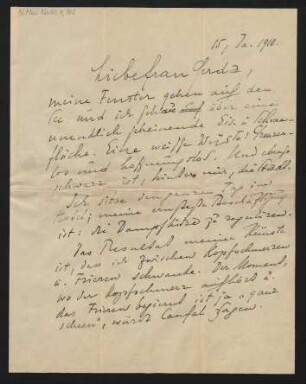 15. Ja. 1910.
Liebe Frau Lenda,
meine Fenster gehen auf den
See und ich sehe auf über eine
unendlich scheinende Eis- u. Schnee-
fläche. Eine weiße Wüste! Grenzen-
los und hoffnungslos. Und ebenso
schwarz ist, hinter mir, die Stadt.
Ich sitze den ganzen Tag im
meine ernsteste Beschäftigung
ist: die Dampfhitze zu regulieren.
Das Resultat meiner Künste
ist, daß ich zwischen Kopfschmerzen
u. Frieren schwanke. Der Moment,
wo der Kopfschmerz aufhört u.
das Frieren beginnt, ist ja „ganz
scheen“, würde sagen.